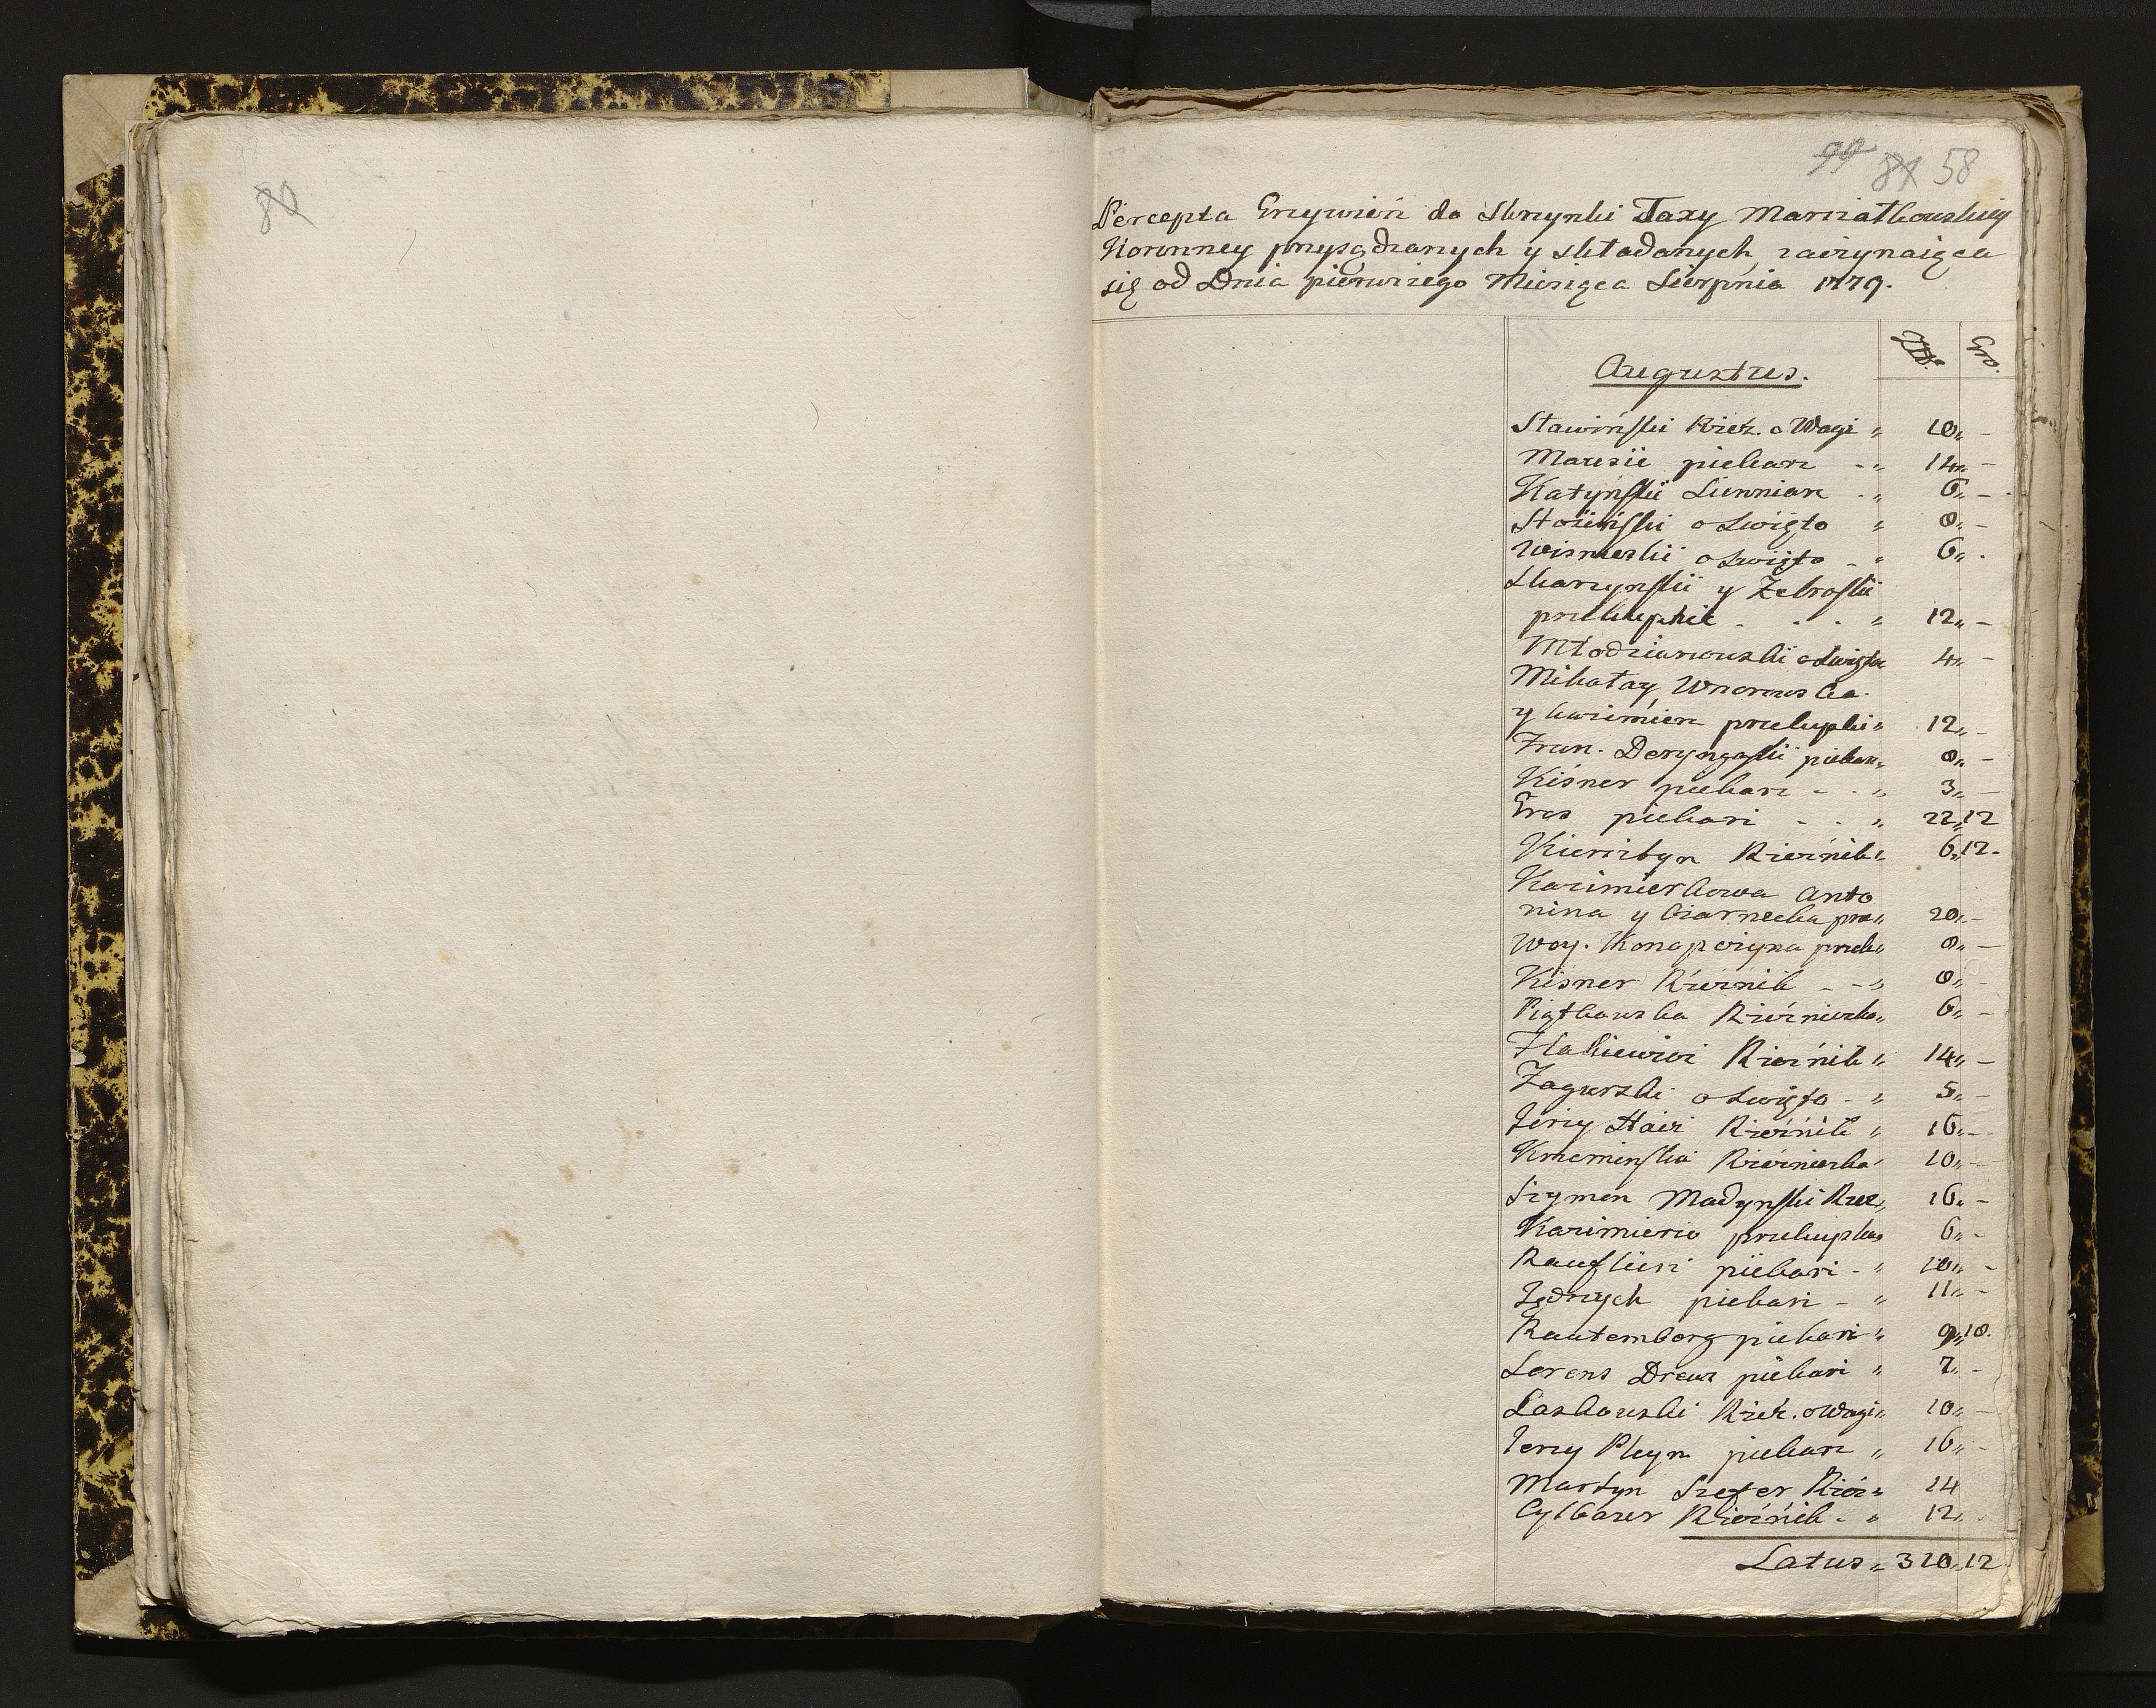 80
99 81 58
Percepta Grzywień do Skrzynki Taxy Marszałkowskiey
Koronney przysądzanych y składanych zaczynaiąca
się od Dnia pierwszego Miesiąca Sierpnia 1779.
Augustus.
Złł. Gro.
Stawiński Rzez. o Wagi „ 10„ -
piekarz - „ 14„ -
Katyński Sienniarz - „ 6„ -
o Swięto „ 8„ -
o Swięto - „ 6„ -
Skarzynski y Zebroski
przekupnie - - - „ 12„ -
Młodzianowski o Swięto 4„ -
Mikołay, Wnorowska
y Kazimierz przekupki „ 12„ -
Fran. piekarz „ 8„ -
Kisner piekarz - - „ 3„ -
Gros piekarz - - „ 22„12
Rzeźnik „ 6„12.
Kazimierkowa Anto
nina y Czarnecka prze„ 20„ -
Woy. Konopczyna przek„ 8„ -
Kisner Rzeźnik - - „ 8„ -
Piątkowska Rzeźniczka „ 6„ -
Rzeźnik „ 14„ -
Zagurski o Swięto - „ 5„ -
Jerzy Rzeźnik „ 16„ -
Krzeminska Rzeźniczka 10„ -
Szymon Madynski Rzez„ 16„ -
przekupka 6„ -
piekarz - „ 10„ -
Jędrzych piekarz - „ 11„ -
Rautemberg piekarz „ 9„18.
Lorens Drews piekarz „ 7„ -
Laskowski Rzeź. o Wagi„ 10„ -
Jerzy Pleyn piekarz „ 16„ -
Martyn Szefer Rzeź„ 14
Rzeźnik - „ 12„ -
Latus „ 320„12